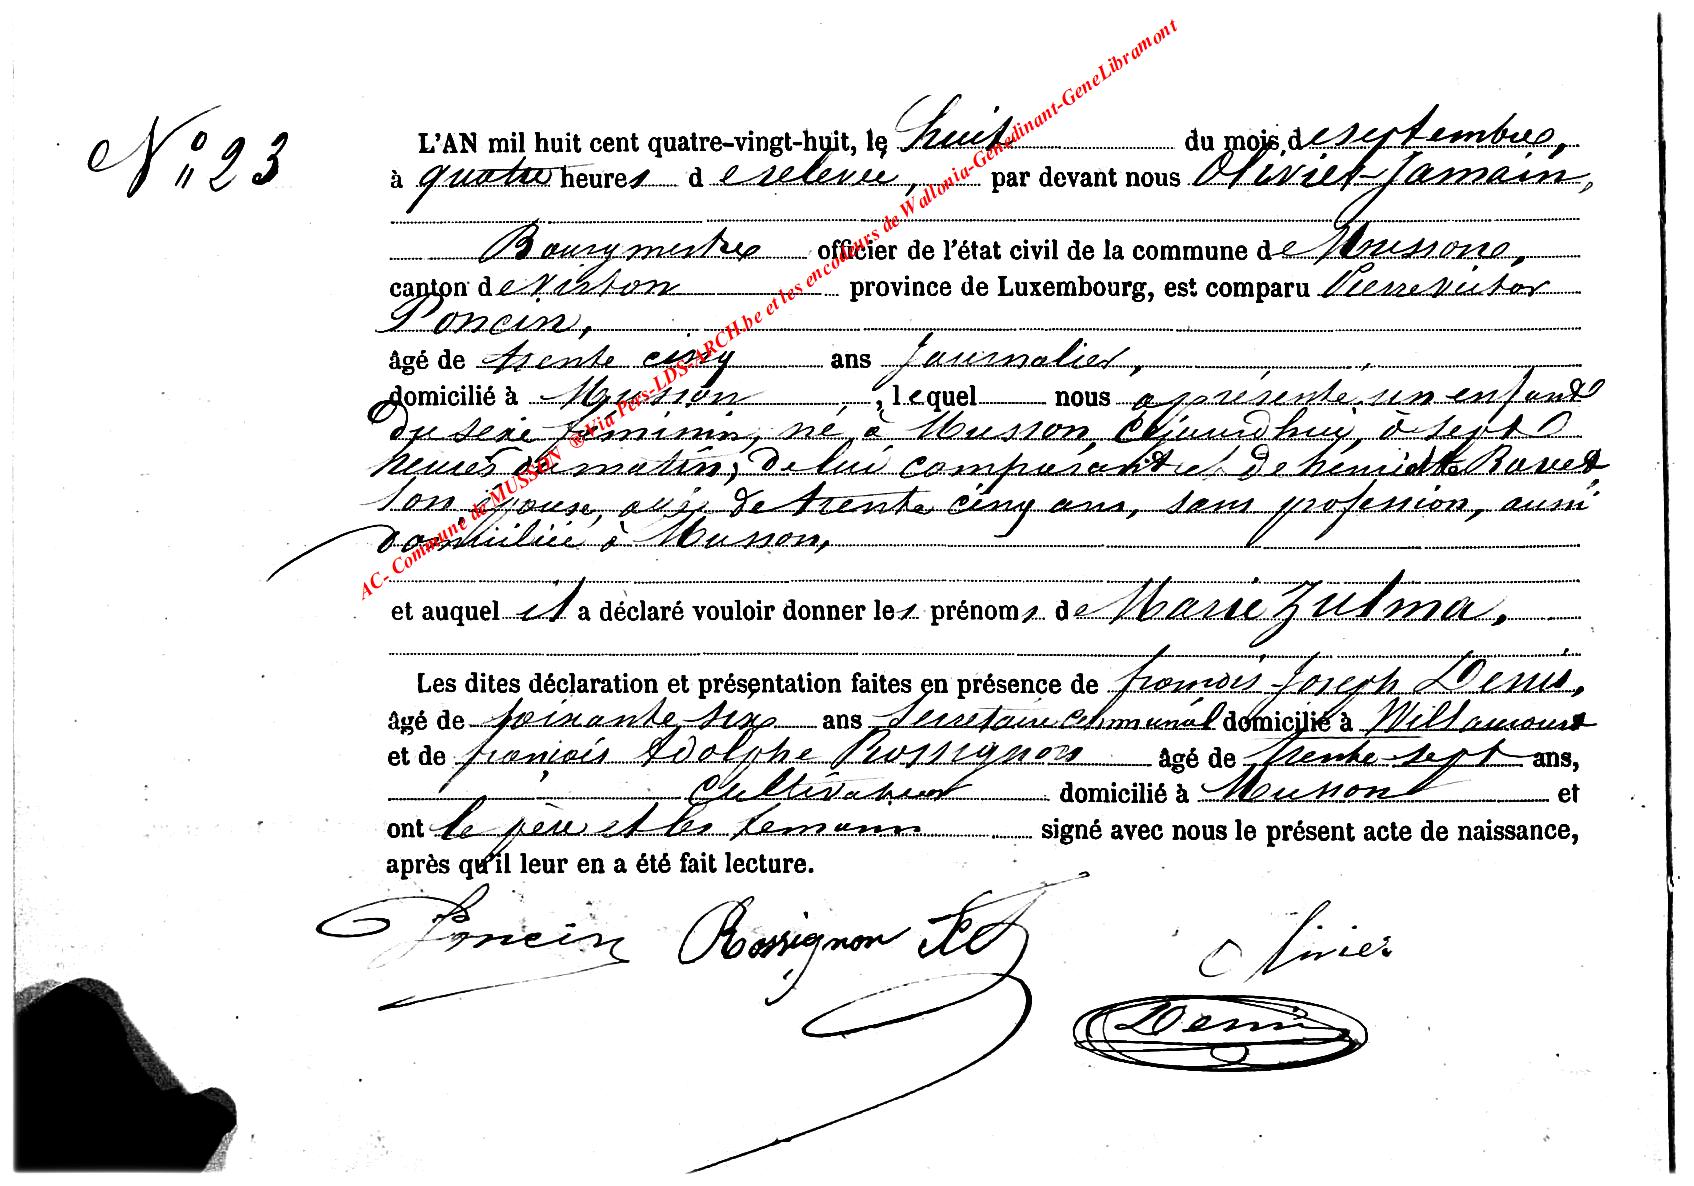 N° 23
L'AN mil huit cent quatre-vingt-huit, le huit du mois de septembre,
à quatre heures de relevée, par devant nous Olivier Jamain,
Bourgmestre officier de l'état civil de la commune de Musson,
canton de Virton province de Luxembourg, est comparu Pierre Victor
Poncin,
âgé de trente cinq ans Journalier,
domicilié à Musson, lequel nous a présenté un enfant
du sexe féminin, né à Musson, cejourd'hui, à sept
heures du matin, de lui comparant et de
son épouse, âgée de trente cinq ans, sans profession, aussi
domiciliée à Musson,
et auquel il a déclaré vouloir donner les prénoms de Marie Zulma,
Les dites déclaration et présentation faites en présence de françois Joseph Denis,
âgé de soixante six ans Secrétaire communal domicilié à Willancourt
et de françois Adolphe Rossignon âgé de trente-sept ans,
Cultivateur domicilié à Musson et
ont le père et les témoins signé avec nous le présent acte de naissance,
après qu'il leur en a été fait lecture.
Poncin Rossignon Olivier
Denis
AC- Commune de MUSSON ® Via Pers-LDS-ARCH.be et les encodeurs de Wallonia-Genedinant-GeneLibramont